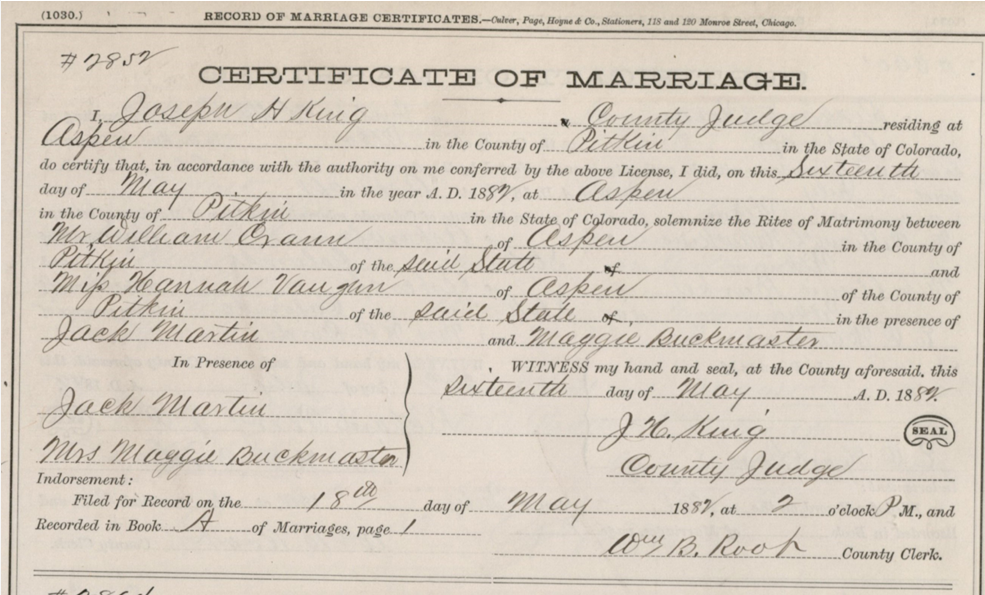 (1030.) RECORD OF MARRIAGE CERTIFICATES.—Culver, Page, Hoyne & Co., Stationers, 118 and 120 Monroe Street, Chicago.
#2852
CERTIFICATE OF MARRIAGE.
I, Joseph H King County Judge residing at
Aspen in the County of Pitkin in the State of Colorado,
do certify that, in accordance with the authority on me conferred by the above License, I did, on this Sixteenth
day of May in the year A. D. 1882, at Aspen
in the County of Pitkin in the State of Colorado, solemnize the Rites of Matrimony between
Mr William Orann of Aspen in the County of
Pitkin of the said State of and
Miss Hannah Vaughn of Aspen of the County of
Pitkin of the said State of in the presence of
Jack Martin and Maggie Buckmaster
In Presence of WITNESS my hand and seal, at the County aforesaid, this
sixteenth day of May A. D. 1882.
Jack Martin J H. King SEAL
Mrs Maggie Buckmaster County Judge
Indorsement:
Filed for Record on the 18th day of May 1882, at 2 o'clock P.M., and
Recorded in Book A of Marriages, page 1
Wm B. Root County Clerk.